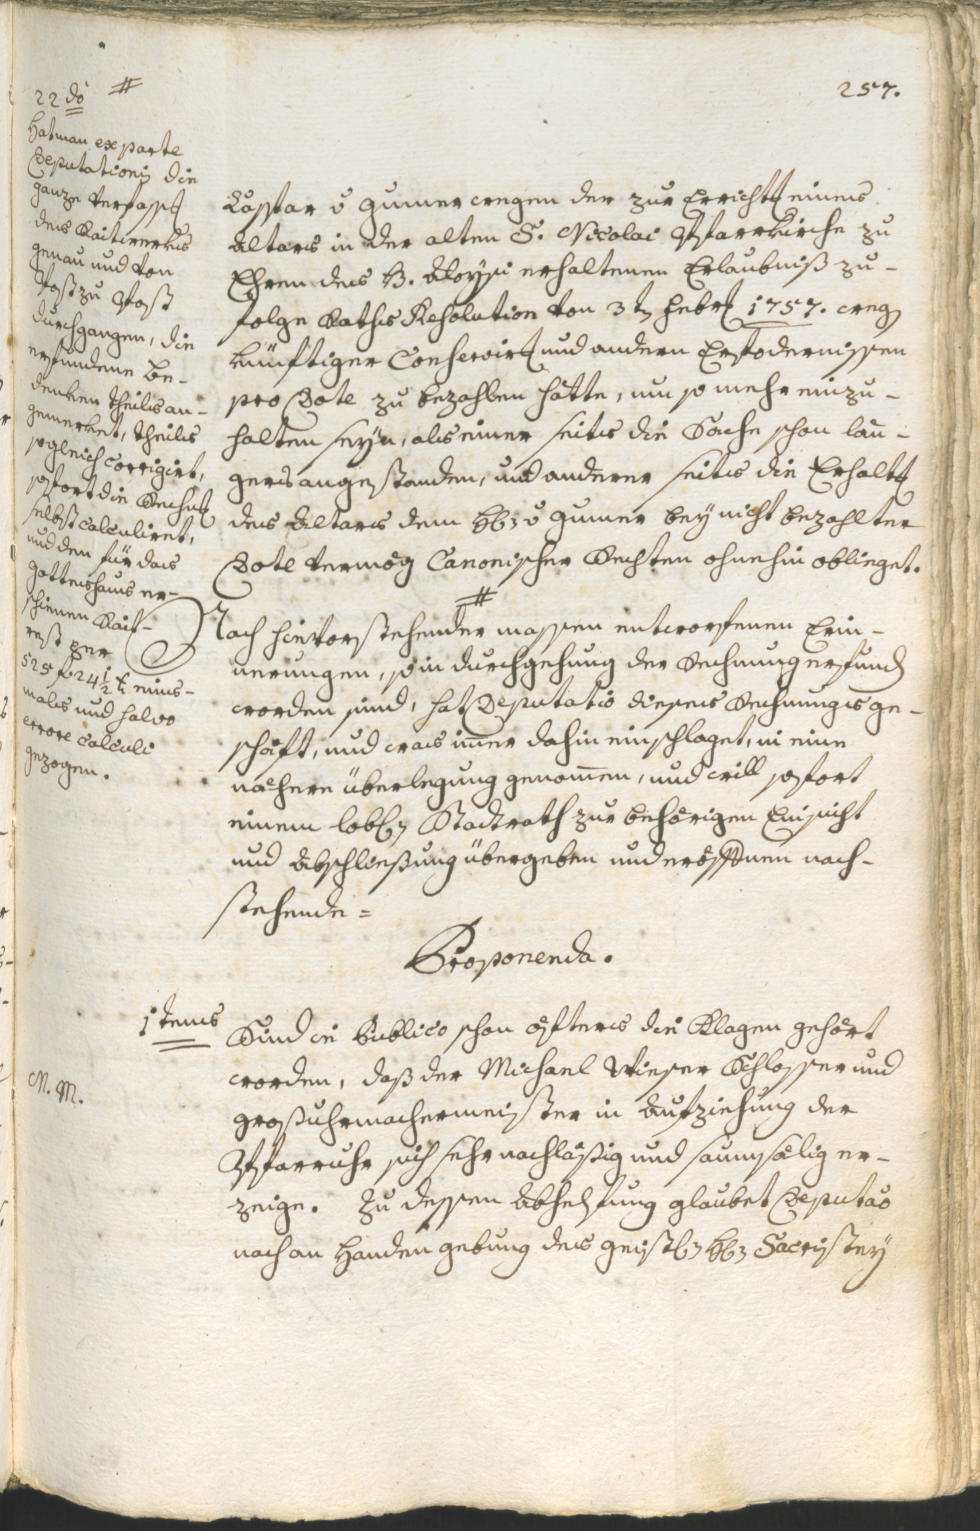 257.
22 do #
Hat man ex parte
Deputationis die
ganze Verfasst
des Raitwerks
genau und von
Post zu Post
durchgangen, die
erfundene Be-
denken theils an-
gemerket, theils
sogleich corrigirt,
sofort die Rechnung
selbst calculiret,
und den für das
Gottshaus er-
schienen Rait-
rest per
525 f 24 1/2 x eins-
mals und salvo
errore calculi
gezogen.
Kaspar v Gumer wegen der zur Erricht. eines
Altars in der alten S. Nicolai Pfarrkirche zu
Ehren des B. Aloysi erhaltenen Erlaubniß zu-
folge Raths Resolution von 3t Febr 1757. weg
künftiger und andern Erfodernissen
pro Dote zu bezahlen hätte, um so mehr einzu-
halten seyn, als einer seits die Sache schon län-
gers angestanden, und anderer seits die Erhalt.
des Altars dem H v Gumer bey nicht bezahlter
Dote vermög Canonischer Rechten ohnehin oblieget.
#
Nach hievorstehender massen entworfenen Erin-
nerungen, so in durchgehung der Rechnung erfunden
worden sind, hat Deputatio dieses Rechnungs ge-
schäft, und was imer dahin einschlaget, in eine
nähere überlegung genomen, und will sofort
einem lobl Stadtrath zur behörigen Einsicht
und Abschließung übergeben und eröffnen nach-
stehende =
Proponenda.
1tens
Sind in Publico schon öfters die Klagen gehört
worden, daß der Michael Wieser Schlosser und
N. M.
großuhrmachermeister in Aufziehung der
Pfarruhr sich sehr nachläßig und saumsälig er-
zeige. Zu dessen Abhelfung glaubet Deputao
nach an Handen gebung des geistl H Sacristey